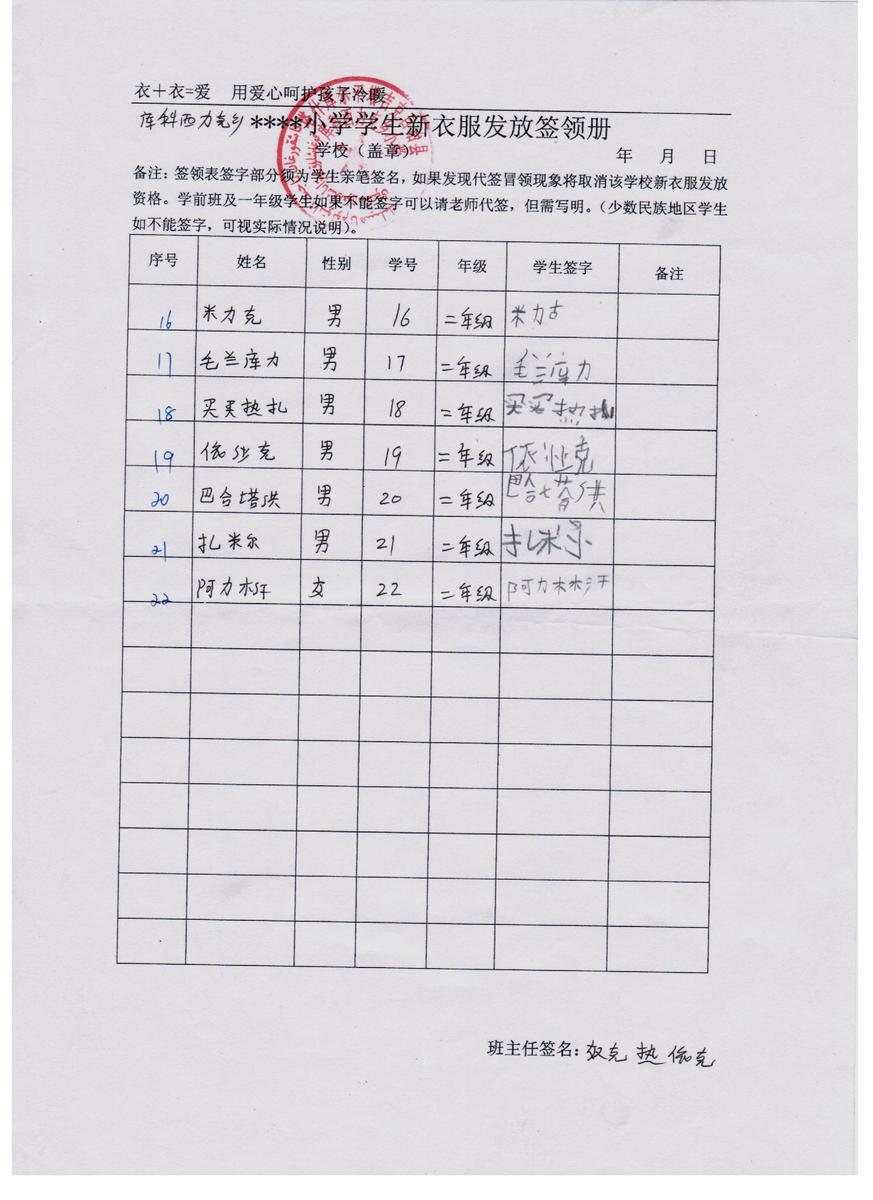 衣＋衣=爱 用爱心呵护孩子冷暖
库科西力克乡 ****小学学生新衣服发放签领册
学校（盖章）
年 月 日
备注：签领表签字部分须为学生亲笔签名，如果发现代签冒领现象将取消该学校新衣服发放
资格。学前班及一年级学生如果不能签字可以请老师代签，但需写明。（少数民族地区学生
如不能签字，可视实际情况说明）。
序号 姓名 性别 学号 年级 学生签字 备注
16 米力克 男 16 二年级 米力古
17 毛兰库力 男 17 二年级 毛兰库力
18 买买热扎 男 18 二年级 买买热扎
19 依沙克 男 19 二年级
20 巴合塔洪 男 20 二年级
21 扎米尔 男 21 二年级 扎米尔
22 阿力木汗 女 22 二年级 阿力木木汗
班主任签名：奴克热依克